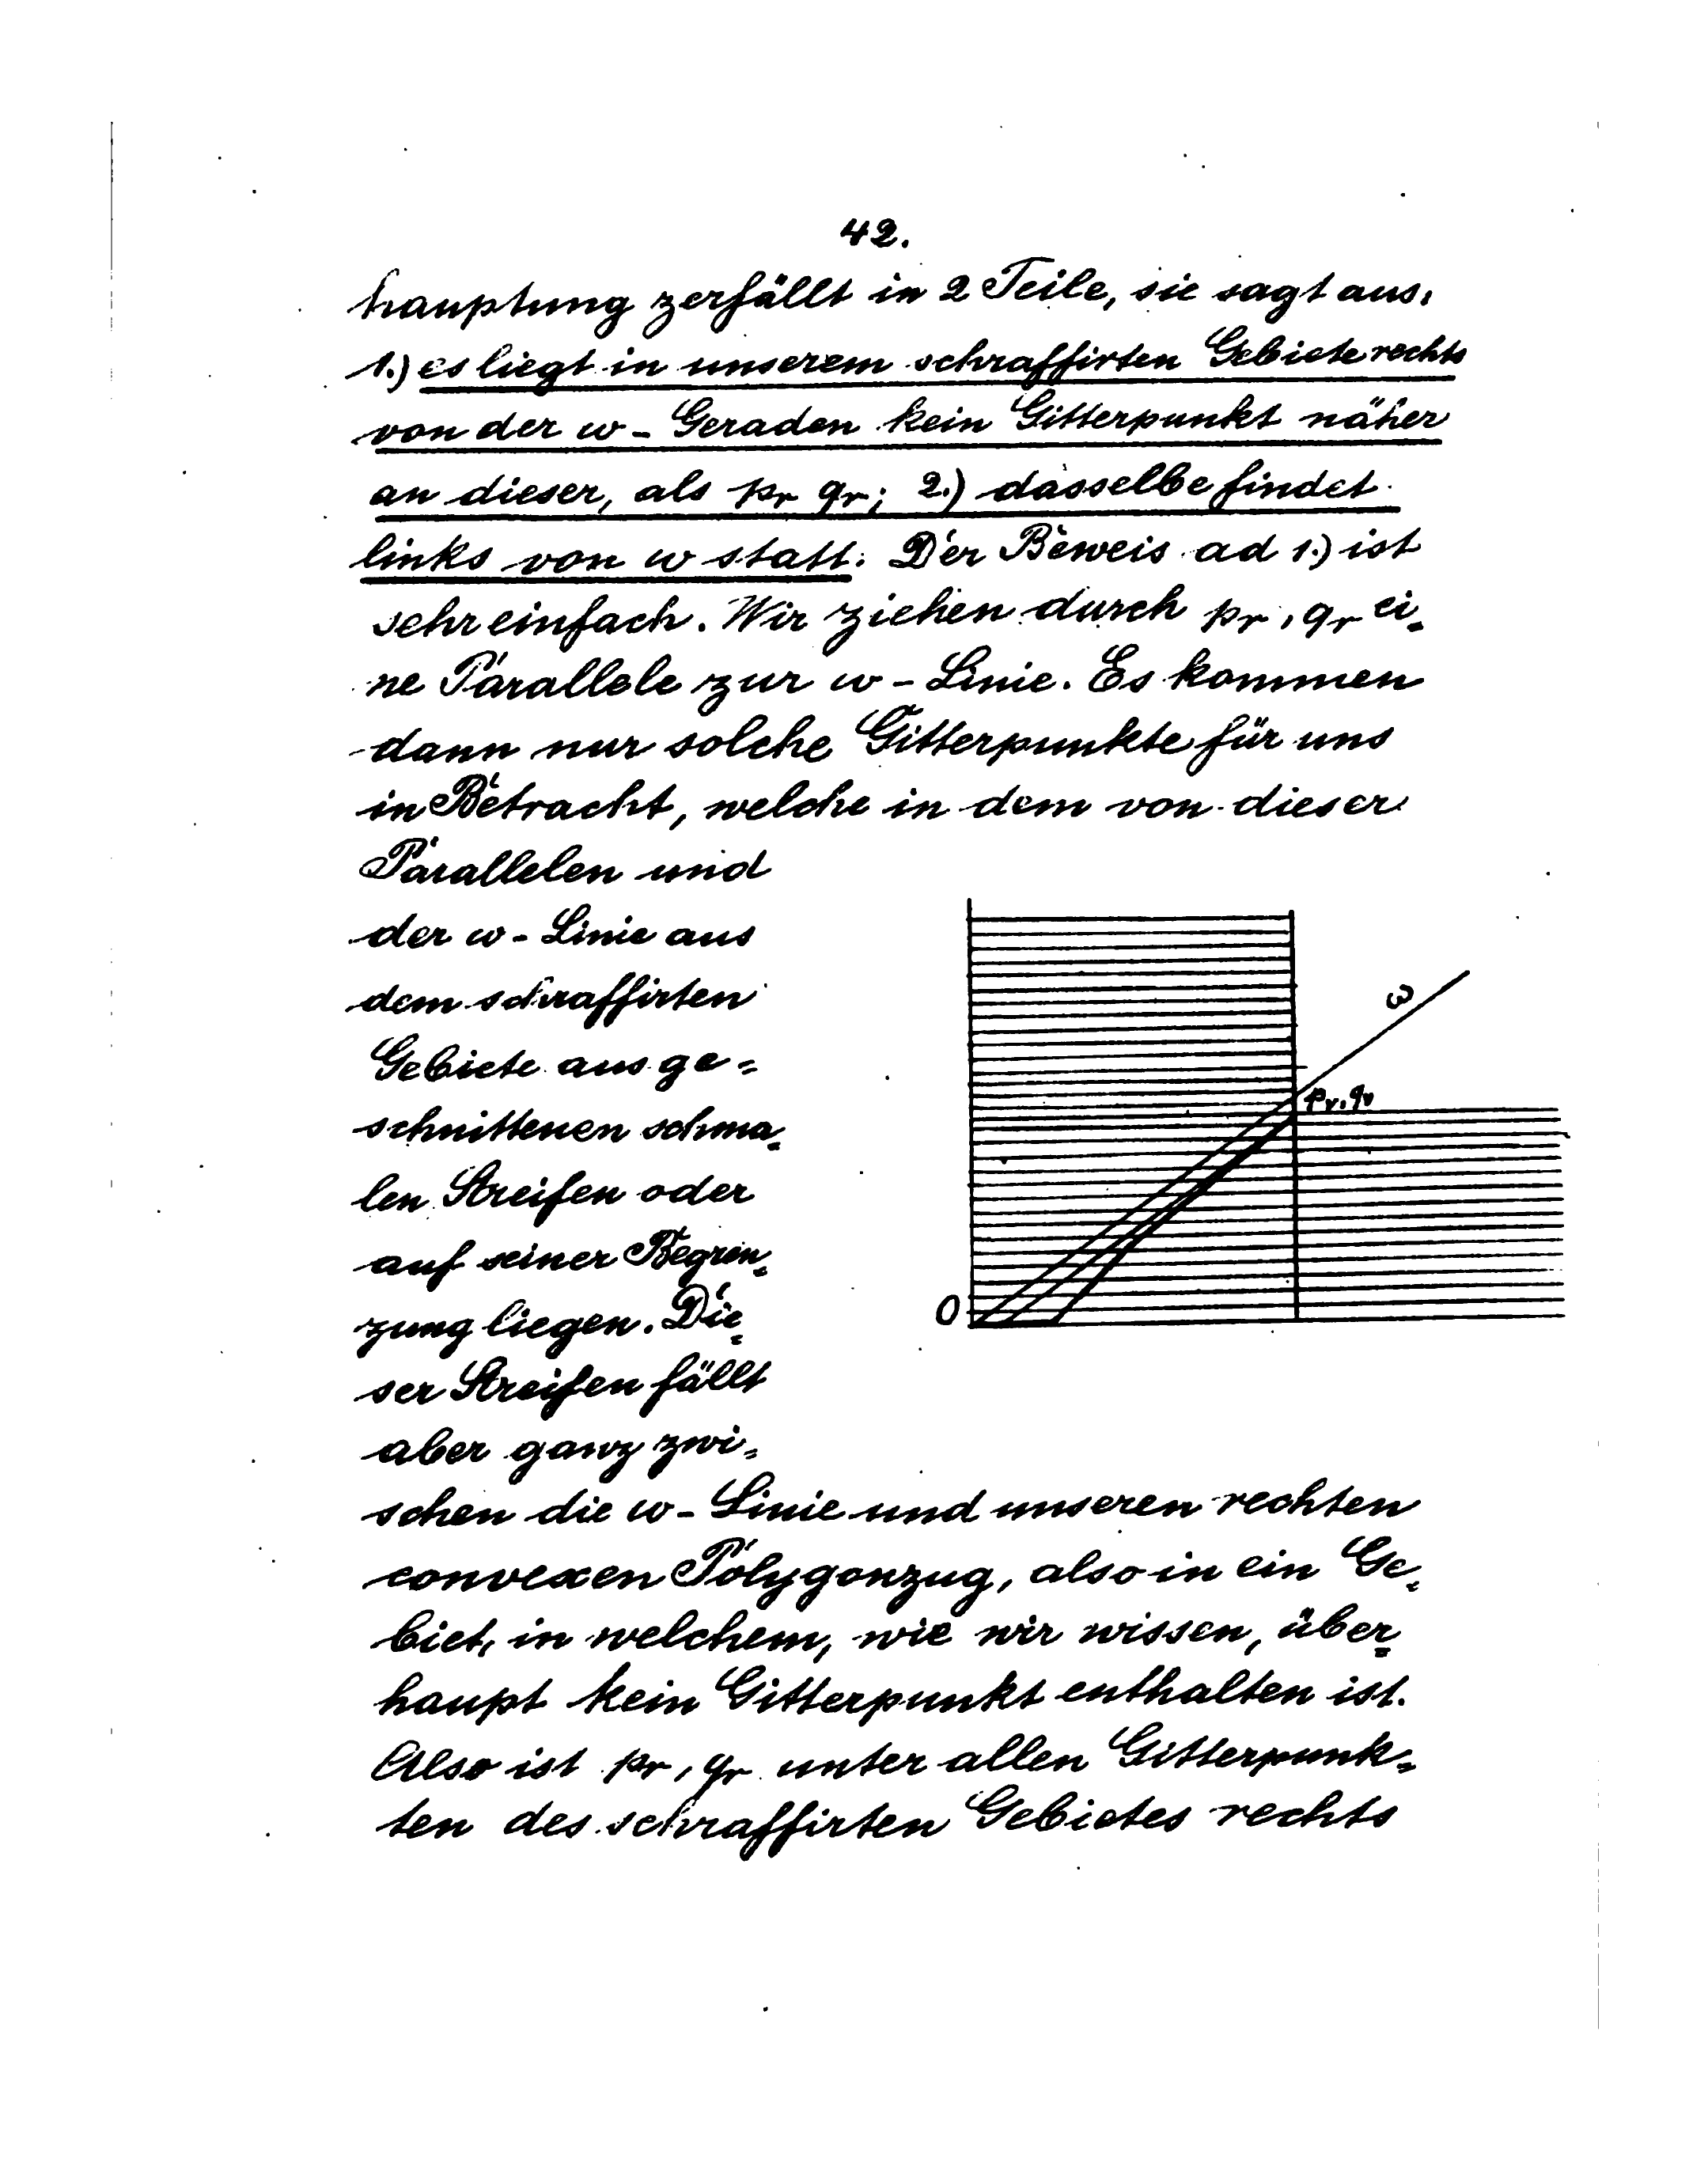 42.
hauptung zerfällt in 2 Teile, sie sagt aus:
1.) es liegt in unserem schraffirten Gebiete rechts
von der w - Geraden kein Gitterpunkt näher
an dieser, als pr qr; 2.) dasselbe findet
links von w statt. Der Beweis ad 1.) ist
sehr einfach. Wir ziehen durch pr, qr ei-
ne Parallele zur w - Linie. Es kommen
dann nur solche Gitterpunkte für uns
in Betracht, welche in dem von dieser
Parallelen und
der w - Linie aus
dem schraffirten
Gebiete ausge=
schnittenen schma=
len Streifen oder
auf seiner Begren=
zung liegen. Die=
ser Streifen fällt
aber ganz zwi=
schen die w - Linie und unseren rechten
convexen Polygonzug, also in ein Ge=
biet, in welchem, wie wir wissen, über=
haupt kein Gitterpunkt enthalten ist.
Also ist pr, qr unter allen Gitterpunk=
ten des schraffirten Gebietes rechts
ω
pν, qν
O